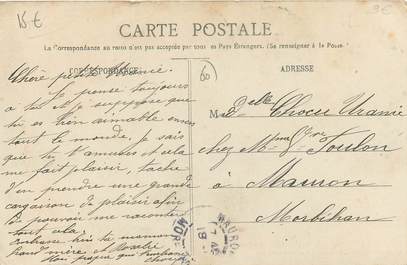 15 €
9€
CARTE POSTALE
La Correspondance au recto n'est pas acceptée par tous les Pays Étrangers. (Se renseigner à la Poste)
CORRESPONDANCE
ADRESSE
Chère petite
Je pense toujours
à toi. Je suppose que
tu es bien aimable envers
tout le monde. Je sais
que tu t'amuses et cela
me fait plaisir, tache
d'en prendre une grande
cargaison de plaisir afin
de pouvoir me raconter
tout cela.
Embrasse bien ta maman
grand mère et
Mon
60
Mad Delle Chocu Uranie
chez Mme Vve Toulon
à Mauron
Morbihan
MAURON